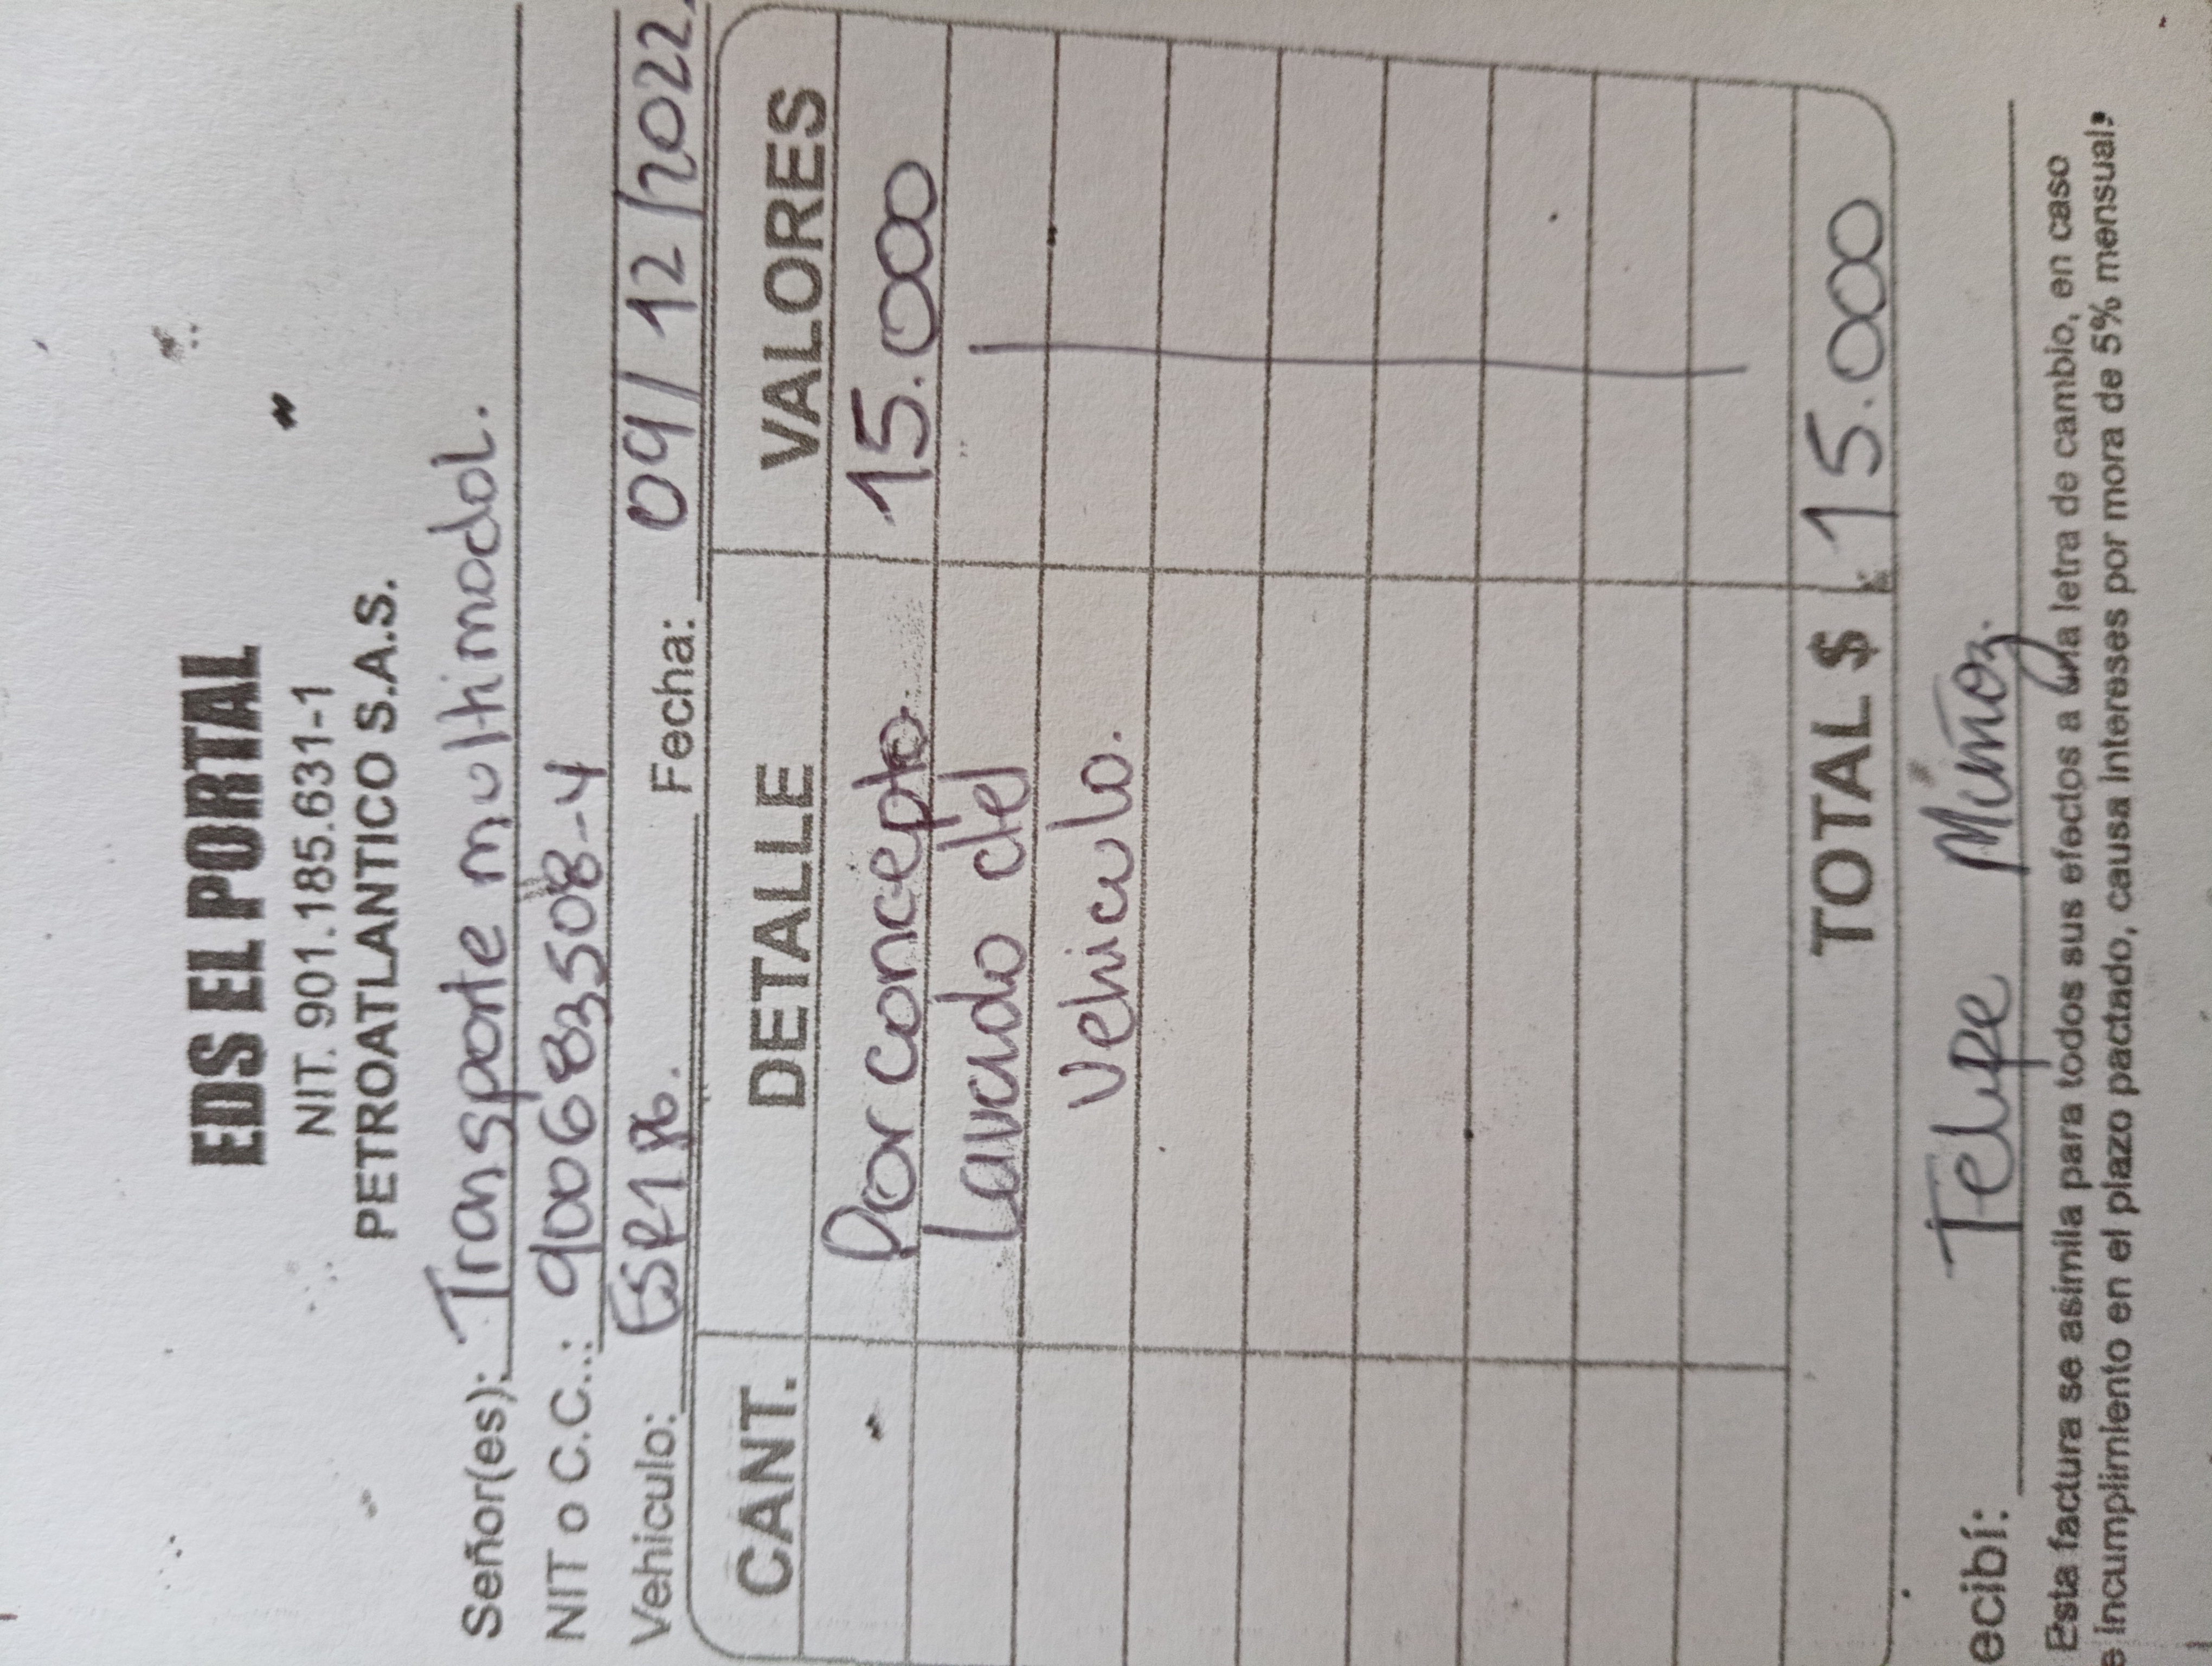 EDS EL PORTAL
NIT. 901.185.631-1
PETROATLANTICO S.A.S.
Señor(es): Transporte multimodal.
NIT o C.C..: 900683508-4
Vehiculo: Fecha: 09/12/2022.
CANT. DETALLE VALORES
Por concepto 15.000
Lavado del
Vehiculo.
TOTAL $ 15.000
ecibí: Felipe Muñoz
Esta factura se asimila para todos sus efectos a una letra de cambio, en caso
e incumplimiento en el plazo pactado, causa intereses por mora de 5% mensual.